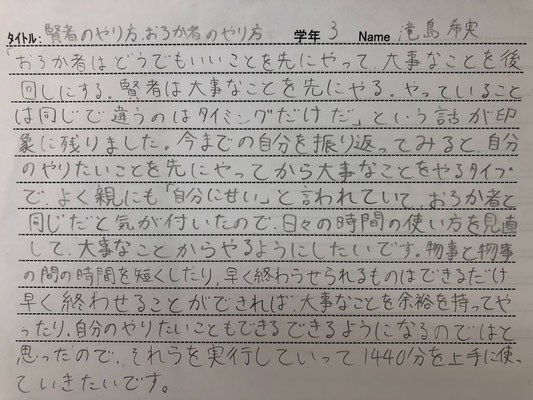 タイトル: 賢者のやり方、おろか者のやり方 学年 3 Name 滝島 希実
「おろか者はどうでもいいことを先にやって、大事なことを後
回しにする。賢者は大事なことを先にやる。やっていること
は同じで違うのはタイミングだけだ」という話が印
象に残りました。今までの自分を振り返ってみると、自分
のやりたいことを先にやってから大事なことをやるタイプ
で、よく親にも「自分に甘い」と言われていて、おろか者と
同じだと気が付いたので、日々の時間の使い方を見直
して、大事なことからやるようにしたいです。物事と物事
の間の時間を短くしたり、早く終わらせられるものはできるだけ
早く終わせることができれば、大事なことを余裕を持ってや
ったり、自分のやりたいこともできるできるようになるのではと
思ったので、それらを実行していって1440分を上手に使っ
ていきたいです。